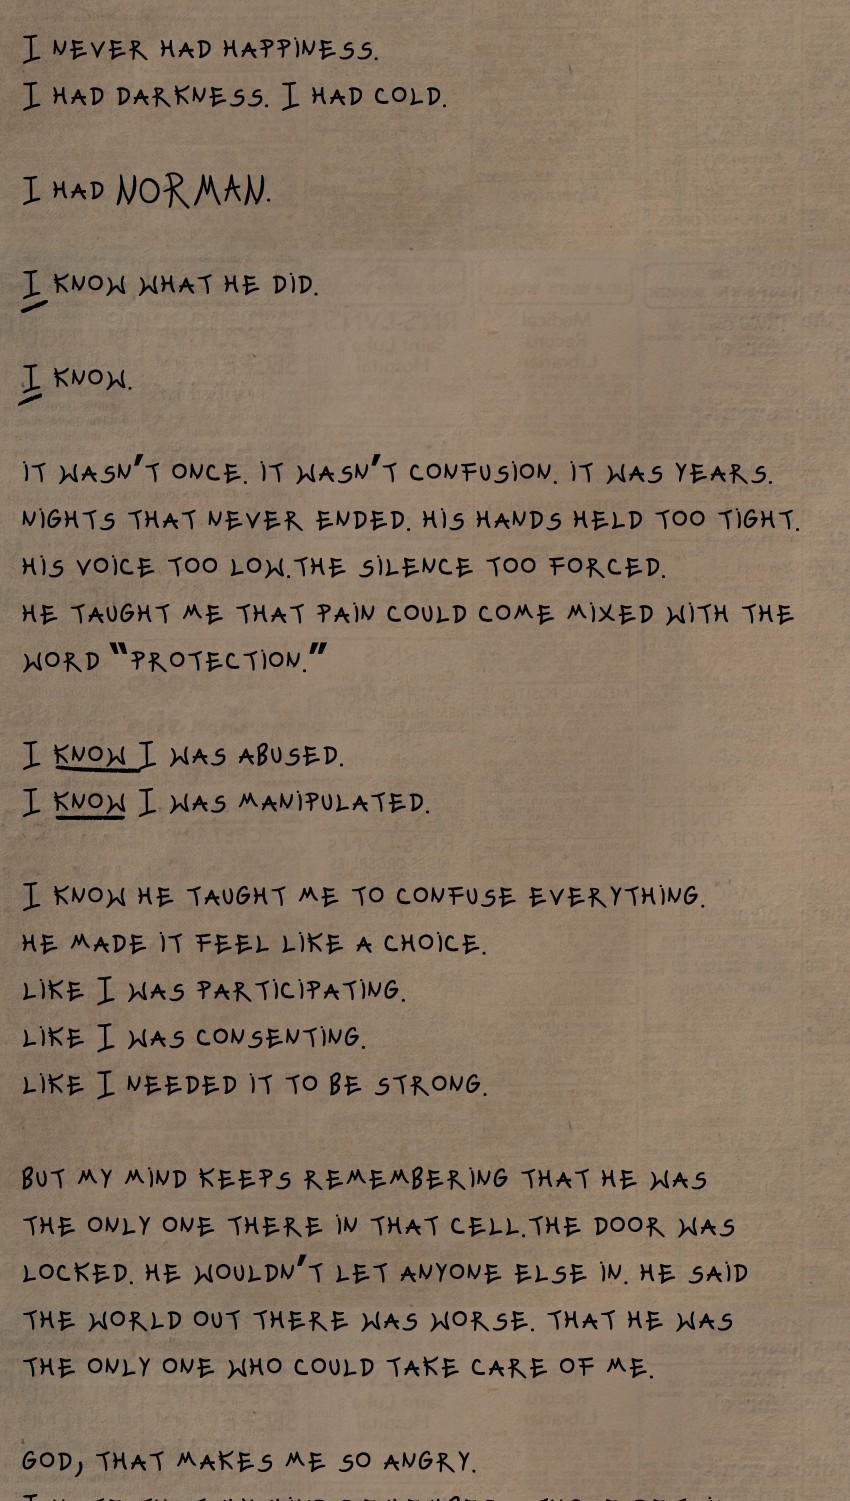 I NEVER HAD HAPPINESS.
I HAD DARKNESS. I HAD COLD.
I HAD NORMAN.
I KNOW WHAT HE DID.
I KNOW.
IT WASN'T ONCE. IT WASN'T CONFUSION. IT WAS YEARS.
NIGHTS THAT NEVER ENDED. HIS HANDS HELD TOO TIGHT.
HIS VOICE TOO LOW.THE SILENCE TOO FORCED.
HE TAUGHT ME THAT PAIN COULD COME MIXED WITH THE
WORD "PROTECTION."
I KNOW I WAS ABUSED.
I KNOW I WAS MANIPULATED.
I KNOW HE TAUGHT ME TO CONFUSE EVERYTHING.
HE MADE IT FEEL LIKE A CHOICE.
LIKE I WAS PARTICIPATING.
LIKE I WAS CONSENTING.
LIKE I NEEDED IT TO BE STRONG.
BUT MY MIND KEEPS REMEMBERING THAT HE WAS
THE ONLY ONE THERE IN THAT CELL.THE DOOR WAS
LOCKED. HE WOULDN'T LET ANYONE ELSE IN. HE SAID
THE WORLD OUT THERE WAS WORSE. THAT HE WAS
THE ONLY ONE WHO COULD TAKE CARE OF ME.
GOD, THAT MAKES ME SO ANGRY.